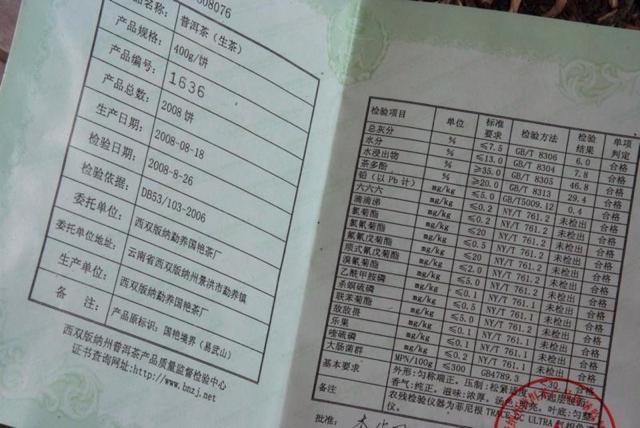 08076
品名称: 普洱茶（生茶）
产品规格: 400g/饼
产品编号: 1636
产品总数: 2008 饼
生产日期: 2008-08-18
检验日期: 2008-8-26
检验依据: DB53/103-2006
委托单位: 西双版纳勐养国艳茶厂
委托单位地址: 云南省西双版纳州景洪市勐养镇
生产单位: 西双版纳勐养国艳茶厂
备 注: 产品原标识: 国艳境界（易武山）
西双版纳州普洱茶产品质量监督检验中心
证书查询网址:http://www.bnzj.net
检验项目 单位 标准要求 检验方法 检验结果 单项判定
总灰分 % ≤7.5 GB/T 8306 6.0 合格
水分 % ≤13.0 GB/T 8304 7.8 合格
水浸出物 % ≥35.0 GB/T 8305 46.8 合格
茶多酚 % ≥20.0 GB/T 8313 29.4 合格
铅（以 Pb 计） mg/kg ≤5.0 GB/T5009.12 0.4 合格
六六六 mg/kg ≤0.2 NY/T 761.2 未检出 合格
滴滴涕 mg/kg ≤0.2 NY/T 761.2 未检出 合格
氯菊酯 mg/kg ≤20 NY/T 761.2 未检出 合格
氯氰菊酯 mg/kg ≤0.5 NY/T 761.2 未检出 合格
氟氰戊菊酯 mg/kg ≤20 NY/T 761.2 未检出 合格
顺式氰戊菊酯 mg/kg ≤2.0 NY/T 761.2 未检出 合格
溴氰菊酯 mg/kg ≤5.0 NY/T 761.2 未检出 合格
乙酰甲胺磷 mg/kg ≤0.1 NY/T 761.1 未检出 合格
杀螟硫磷 mg/kg ≤0.5 NY/T 761.1 未检出 合格
联苯菊酯 mg/kg
敌敌畏 mg/kg ≤0.1 NY/T 761.1 未检出 合格
乐果 mg/kg ≤0.1 NY/T 761.1 未检出 合格
喹硫磷 mg/kg ≤0.2 NY/T 761.1 未检出 合格
大肠菌群 MPN/100g ≤300 GB4789.3 ≤30 合格
基本要求 外形: 匀称端正。压制: 松紧适度
香气: 纯正。滋味: 浓厚。叶底: 匀整
备注 农残检验仪器为菲尼根 TRACE GC ULTRA
批准: